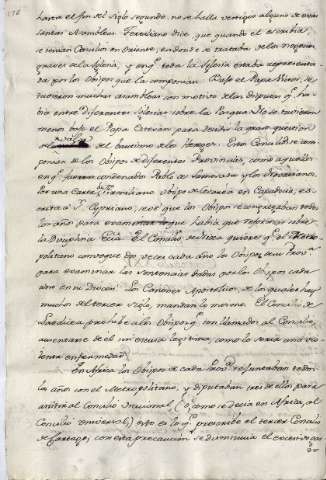 hasta el fin del siglo segundo, no se halla vestigio alguno de
santas Asambleas. Tertuliano dice que quando el escribia, se
tenian Concilios en Oriente, en donde se trataba de los negocios
graves de la Iglesia, y en q.e toda la Iglesia estaba representa
da por los Obispos que la componian. Bajo el Papa Victor, se
tuvieron muchas asambleas con motivo de las disputas q.e ha
bia entre diferentes Iglesias sobre la Pasqua. No se tuvieron
menos bajo el Papa Estevan, para decidir la gran question
del bautismo de los Hereges. Estos Concilios se com
ponian de los Obispos de diferentes Provincias, como aquellos
en q.e fueron condenados Pablo de Samosata y los
Por una Carta de Firmiliano Obispo de Cesarea en Capadocia, es
crita a S. Cypriano, se ve que los Obispos se congregaban todos
los años para examinar lo que habia que reformar sobre
la Disciplina El Concilio quiere q.e el Metro
politano convoque dos veces cada año los Obispos de su Prov.a
para examinar las sentencias dadas por los Obispos cada
uno en su Diocesi. Los Canones Apostolicos, de los quales hay
muchos del tercer siglo, mandan lo mismo. El Concilio de
Laodicea prohibe a los Obispos q.e son llamados al Concilio,
ausentarse de el sin escusa legitima, como lo seria una vio
lenta enfermedad.
En Africa los Obispos de cada Prov.a se juntaban todos
los años con el Metropolitano, y diputaban tres de ellos para
asistir al Concilio Nacional (o, como se decia en Africa, al
Concilio Universal) esto es lo q.e prescribe el tercer Concilio
de Cartago; con esta precaucion se disminuia el excesivo